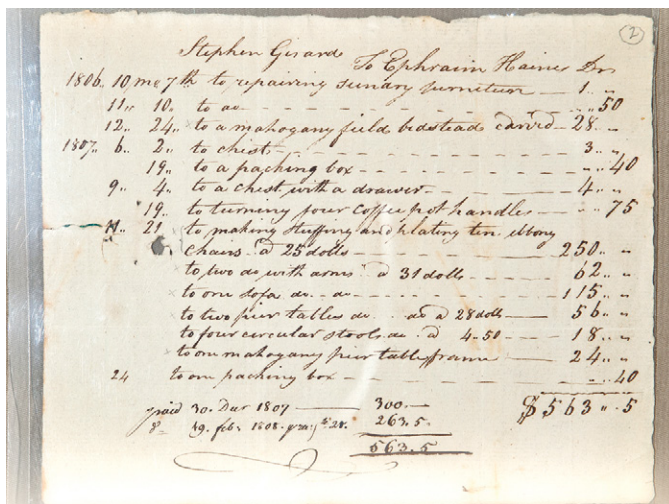 2
Stephen Girard To Ephraim Haines Dr
1806.. 10 mo 7th to repairing sundry furniture - 1 .. "
11 .. 10 .. to do - .. 50
12 .. 24 .. to a mahogany field bedstead carved - 28 .. "
1807 .. 6 .. 2 .. to chest - 3 .. "
19 .. to a packing box - .. 40
9 .. 4 .. to a chest with a drawer - 4 .. "
19 .. to turning four coffee pot handles - .. 75
11 .. 21 to making stuffing and plating ten ebony
chairs @ 25 dolls - 250 .. "
to two do with arms @ 31 dolls - 62 .. "
to one sofa do .. do - 115 .. "
to two pier tables do .. do @ 28 dolls - 56 .. "
to four circular stools do @ 4-50 - 18 .. "
to one mahogany pier table frame - 24 .. "
24 to one packing box - .. 40
$563 .. 5
paid 30. Dbr 1807 - 300. -
do 19. feb. 1808. 263.5.
563.5